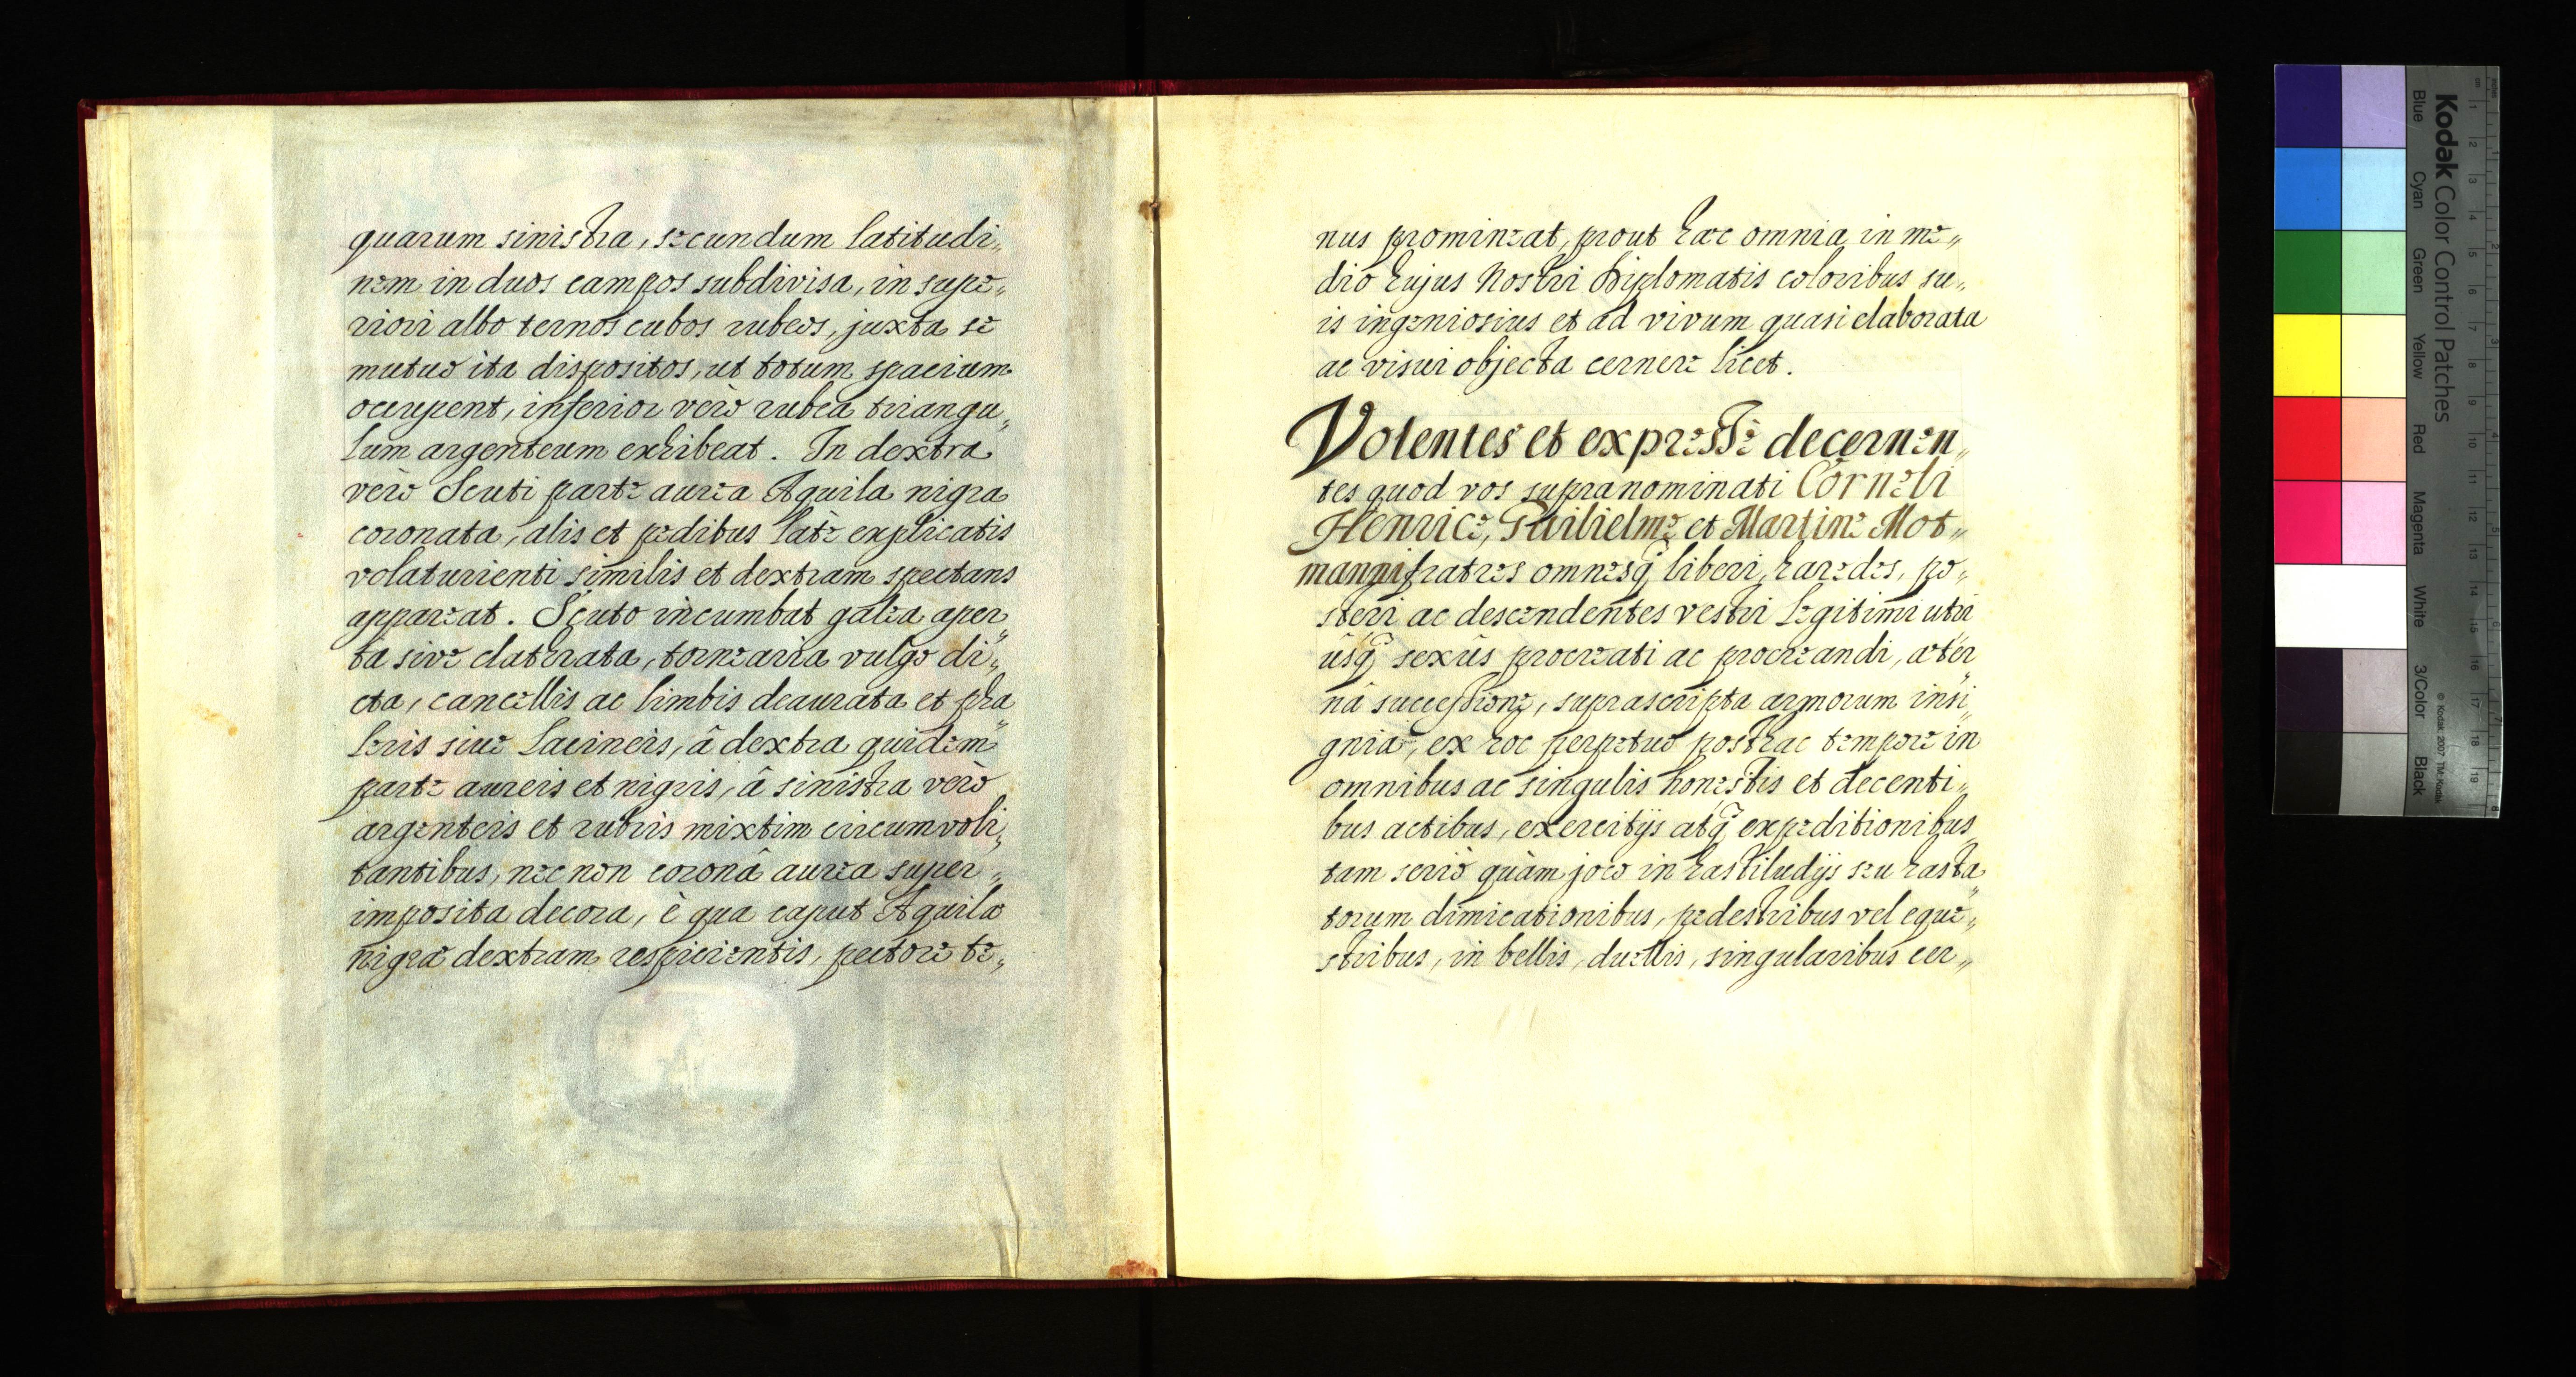 quarum sinistra, secundum latitudi„
nem in duos campos subdivisa, in supe„
riori albo ternos cubos rubeos, juxta se
mutuò ita dispositos, ut totum spacium
occupent, inferior verò rubea triangu„
lum argenteum exhibeat. In dextra
verò Scuti parte aurea Aquila nigra
coronata, alis et pedibus latè explicatis
volaturienti similis et dextram spectans
appareat. Scuto incumbat galea aper„
ta sive clathrata, tornearia vulgo di„
cta, cancellis ac limbis deaurata et pha„
leris sive laciniis, â dextra quidem
parte aureis et nigris, â sinistra verò
argenteis et rubris mixtim circumvoli„
tantibus, nec non coronâ aurea super„
imposita decora, è qua caput Aquilæ
nigræ dextram respicientis, pectore te„
nus promineat, prout hæc omnia in me„
dio hujus Nostri Diplomatis coloribus su„
is ingeniosius et ad vivum quasi elaborata
ac visui objecta cernere licet.
Volentes et expressè decernen„
tes quod vos supranominati Corneli
Henrice, Guilielme et Martine Mot„
manni fratres omnesq̃ liberi, hæredes, po„
steri ac descendentes vestri legitimi utri„
ûsq̃ sexûs procreati ac procreandi, æter„
nâ successione, suprascripta armorum insi„
gnia, ex hoc perpetuò posthac tempore in
omnibus ac singulis honestis et decenti„
bus actibus, exercitijs atq̃ expeditionibus
tam seriò quàm joco in hastiludijs seu hasta„
torum dimicationibus, pedestribus vel eque„
stribus, in bellis, duellis, singularibus cer„
Kodak Color Control Patches
Blue Cyan Green Yellow Red Magenta White 3/Color Black
© Kodak, 2007 TM: Kodak